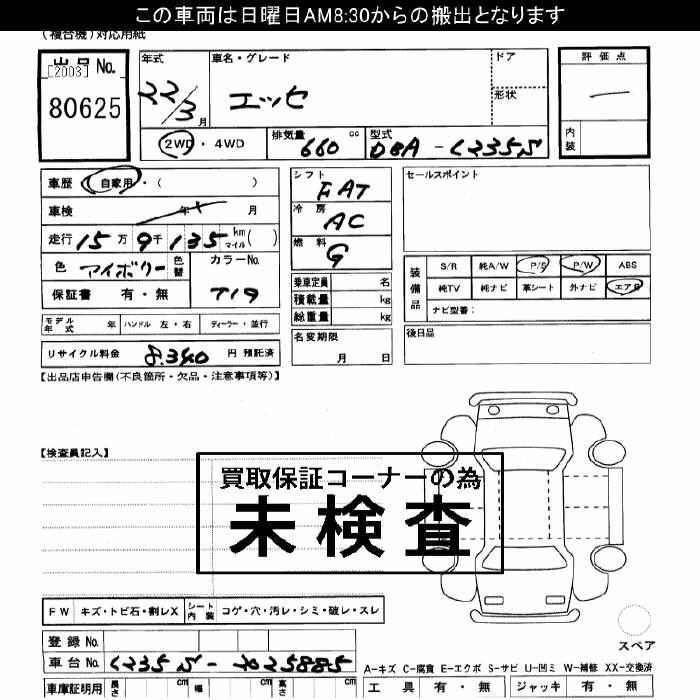 この車両は日曜日AM8:30からの搬出となります
(複合機)対応用紙
出品No.
[2003]
80625
年式
22/3月
車名・グレード
エッセ
ドア
形状
評価点
内装
2WD・4WD
排気量
660 cc
型式
DBA-L235S
車歴 自家用・( )
車検 年 月
走行 15万9千135 km マイル( )
色 アイボリー 色替
カラーNo.
719
保証書 有・無
シフト
FAT
冷房
AC
燃料
G
乗車定員 名
積載量 kg
総重量 kg
セールスポイント
装備品
S/R 純A/W P/S P/W ABS
純TV 純ナビ 革シート 外ナビ エアB
ナビ型番:
モデル年式 年 ハンドル 左・右 ディーラー・並行
名変期限
月 日
後日品
リサイクル料金 8,340 円 預託済
【出品店申告欄(不良箇所・欠品・注意事項等)】
【検査員記入】
買取保証コーナーの為
未検査
FW キズ・トビ石・割レX シート内装 コゲ・穴・汚レ・シミ・破レ・スレ
スペア
登録No.
車台No. L235S-2025885
A-キズ C-腐食 E-エクボ S-サビ U-凹ミ W-補修 XX-交換済
車庫証明用 長さ cm 幅 cm 高さ cm
工具 有・無 ジャッキ 有・無